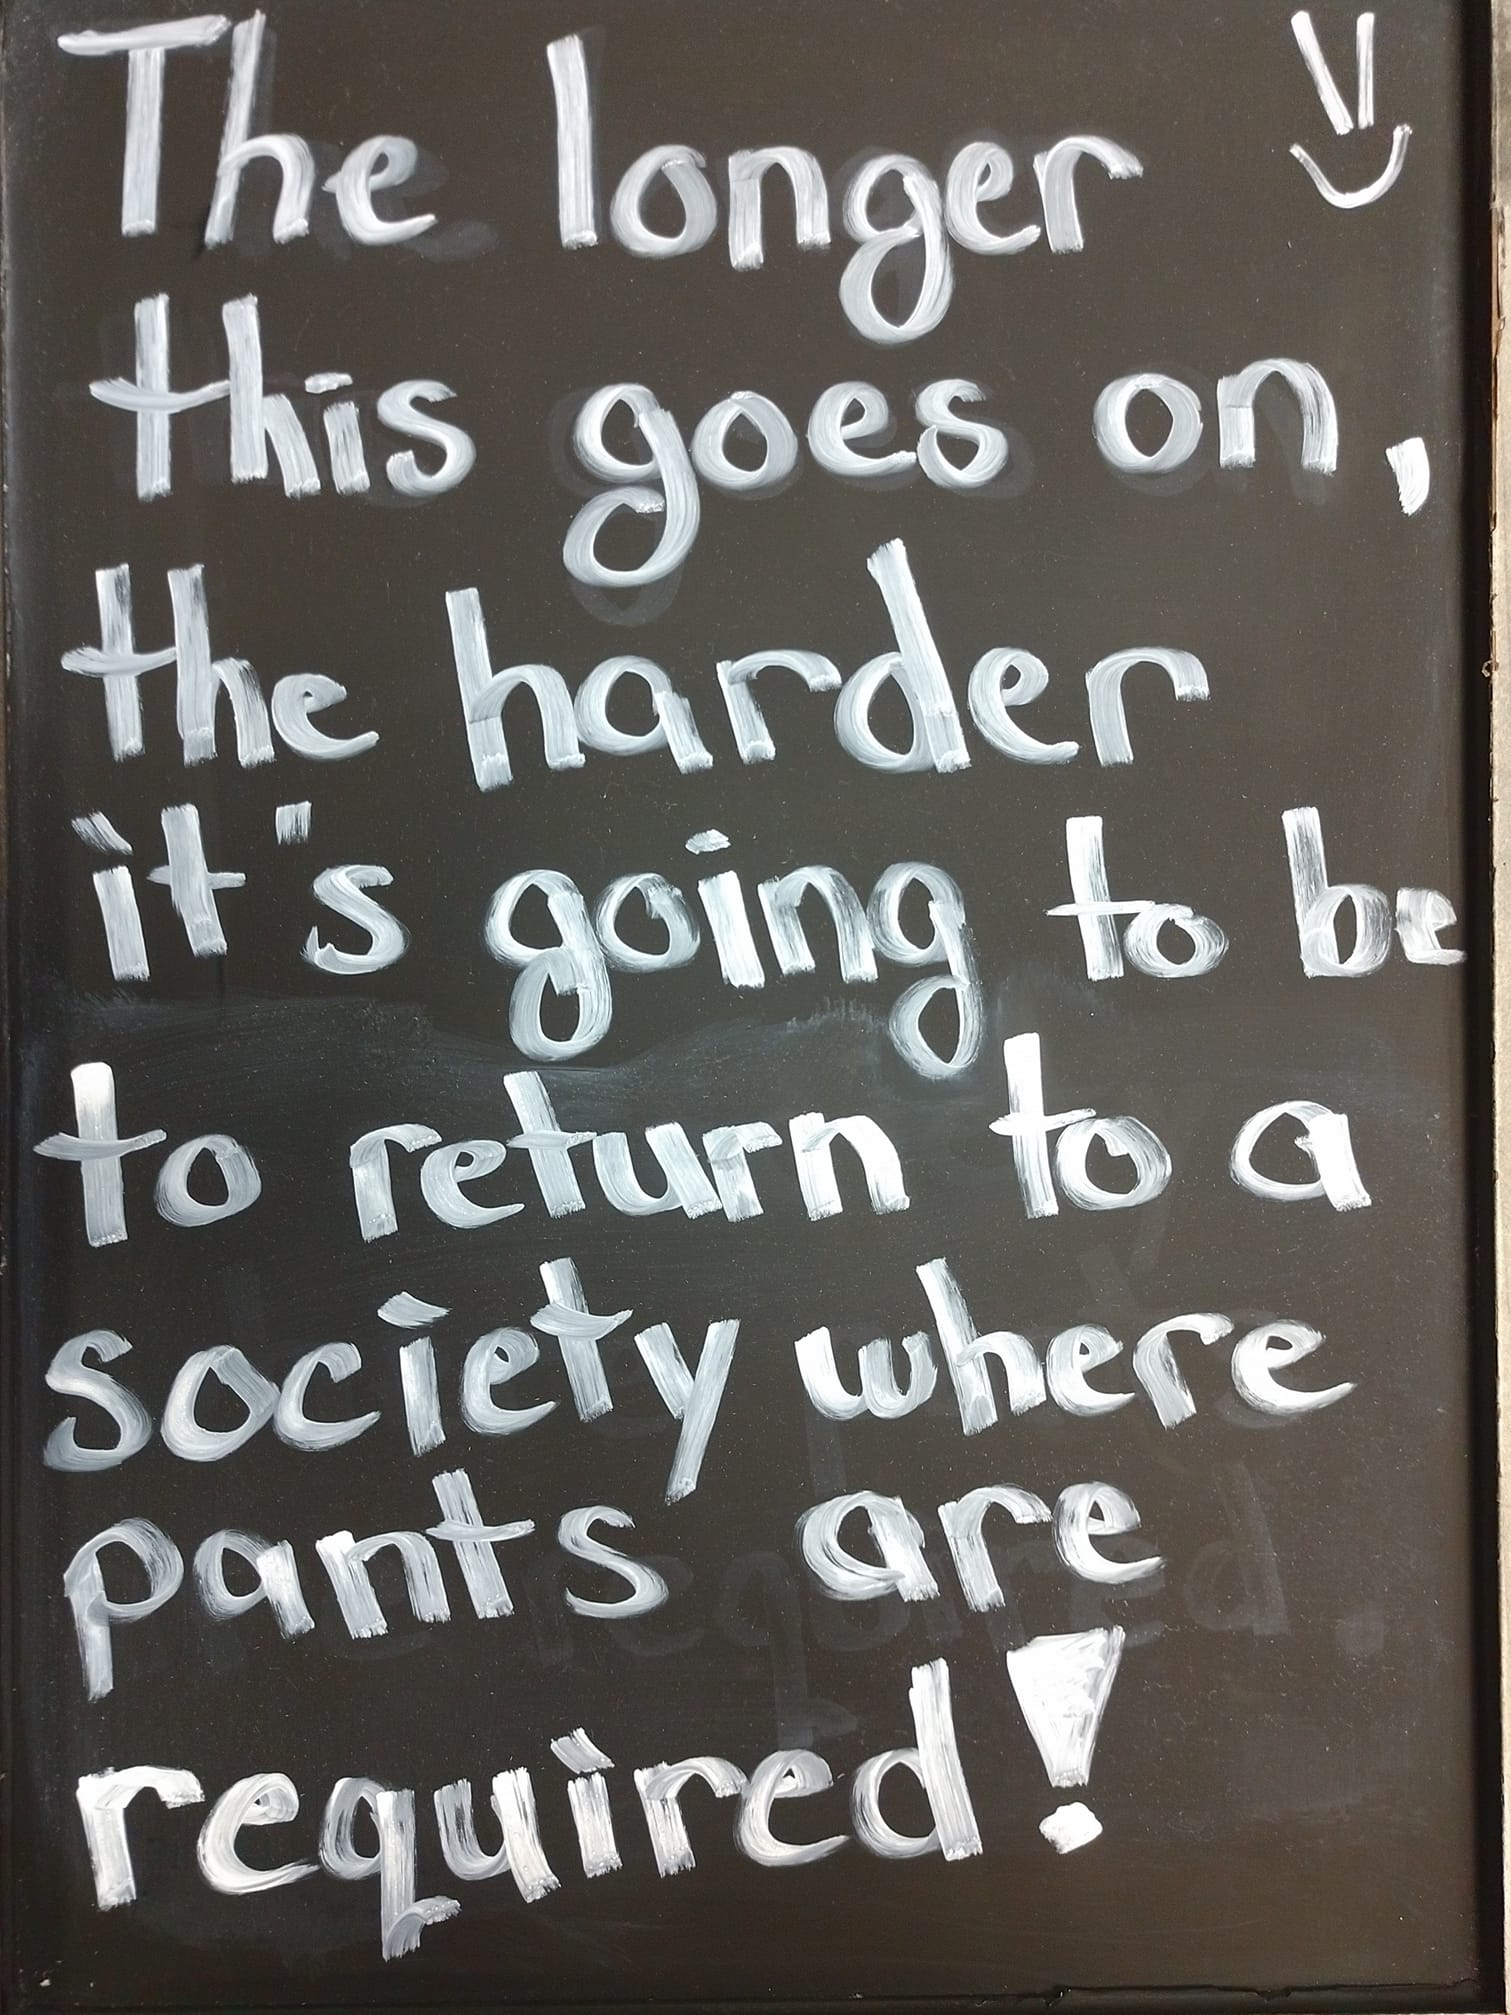 The longer
this goes on,
the harder
it's going to be
to return to a
society where
pants are
required!